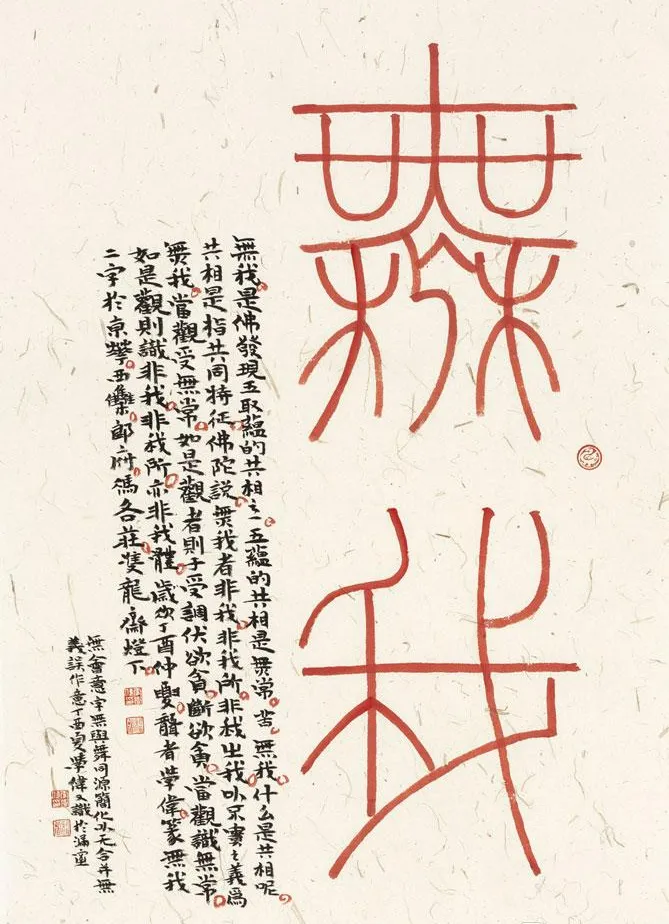 無我
無我是佛發現五取蘊的共相之一五蘊的共相是無常苦無我什么是共相呢
共相是指共同特征佛陀說無我者非我非我所非我出我以不實之義為
無我當觀受無常如是觀者則于受調伏欲貪斷欲貪當觀識無常
如是觀則識非我非我所亦非我體歲次丁酉仲夏聾者學偉篆無我
二字於京華西集郎府馮各莊雙龍齋燈下
無會意字無與舞同源簡化以无合并無
義誤作意丁酉夏學偉又識於漏室